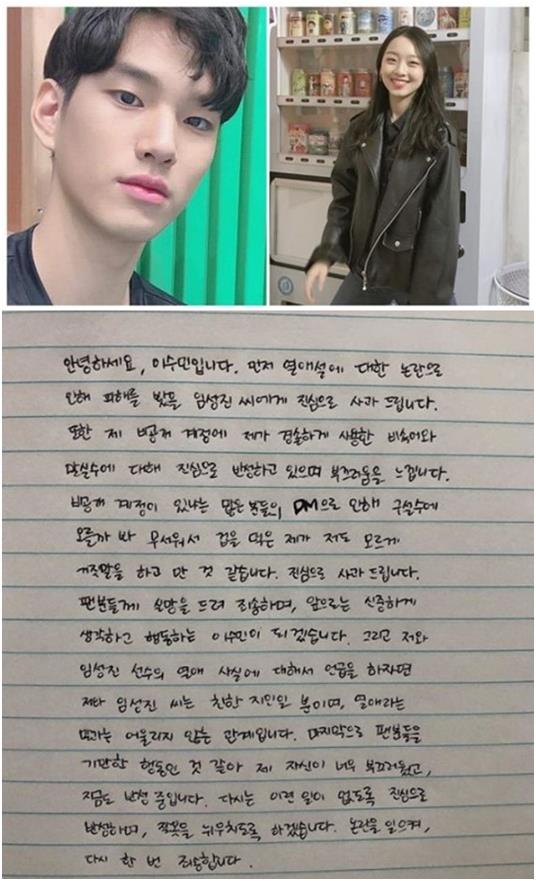 안녕하세요, 이수민입니다. 먼저 열애설에 대한 논란으로
인해 피해를 봤을 임성진 씨에게 진심으로 사과 드립니다.
또한 제 비공개 계정에 제가 경솔하게 사용한 비속어와
말실수에 대해 진심으로 반성하고 있으며 부끄러움을 느낍니다.
비공개 계정이 있냐는 많은 분들의 DM으로 인해 구설수에
오를까 봐 무서워서 겁을 먹은 제가 저도 모르게
거짓말을 하고 만 것 같습니다. 진심으로 사과 드립니다.
팬분들게 실망을 드려 죄송하며, 앞으로는 신중하게
생각하고 행동하는 이수민이 되겠습니다. 그리고 저와
임성진 선수의 열애 사실에 대해서 언급을 하자면
저와 임성진 씨는 친한 지인일 뿐이며, 열애라는
말과는 어울리지 않는 관계입니다. 마지막으로 팬분들을
기만한 행동인 것 같아 제 자신이 너무 부끄러웠고,
지금도 반성 중입니다. 다시는 이런 일이 없도록 진심으로
반성하며, 잘못을 뉘우치도록 하겠습니다. 논란을 일으켜,
다시 한 번 죄송합니다.